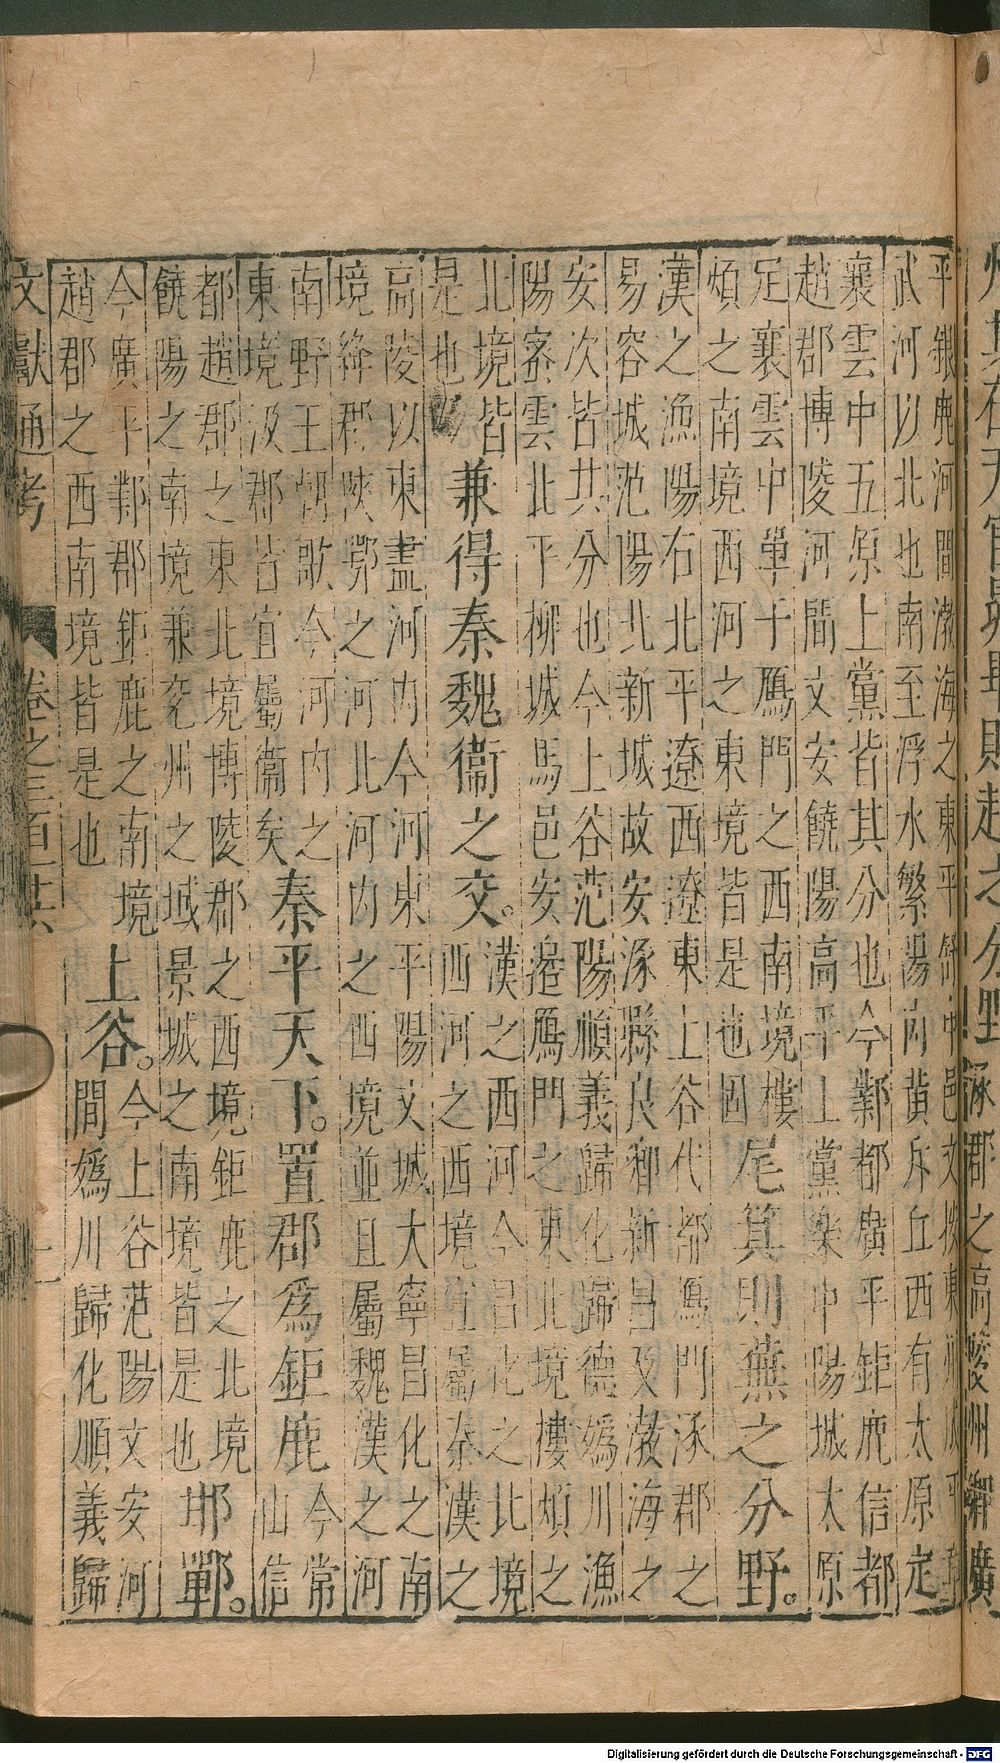 平銀輿河間渤海之東平舒中邑文按東州成平
武河以北也南至浮水繁陽內黃斥丘西有太原定
襄雲中五原上黨皆其分也今鄴都廣平鉅鹿信都
趙郡博陵河間文安饒陽高平上黨樂平陽城太原
定襄雲中單于鴈門之西南境樓
煩之南境西河之東境皆是也固
尾箕則燕之分野。
漢之漁陽右北平遼西遼東上谷代郡鴈門涿郡之
易容城范陽北新城故安涿縣良鄉新昌及渤海之
安次皆共分也今上谷范陽順義歸化歸德媯川漁
陽密雲北平柳城馬邑安邊鴈門之東北境樓煩之
北境皆
是也
兼得秦魏衞之交。
漢之西河今昌化之北境
西河之西境宜屬秦漢之
高陵以東盡河內今河東平陽文城大寧昌化之南
境絳郡陝鄈之河北河內之西境並且屬魏漢之河
南野王朝歌今河內之
東境汲郡皆宜屬衞矣
秦平天下。置郡爲鉅鹿
今常
山信
都趙郡之東北境博陵郡之西境鉅鹿之北境
饒陽之南境兼兖州之域景城之南境皆是也
邯鄲。
今廣平鄴郡鉅鹿之南境
趙郡之西南境皆是也
上谷。
今上谷范陽文安河
間媯川歸化順義歸
文獻通考
卷之三百一十六
十一
州其在天官昴畢則趙之分野
涿郡之高
廣